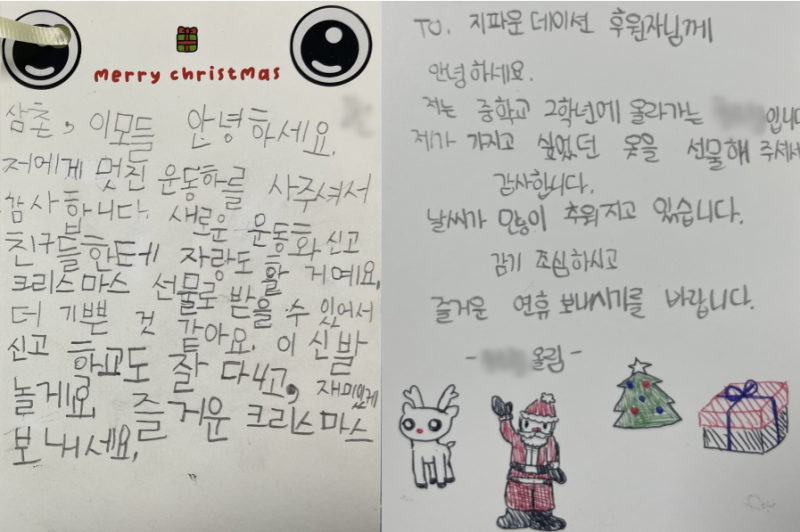 merry christmas
삼촌, 이모들 안녕하세요.
저에게 멋진 운동화를 사주셔서
감사합니다. 새로운 운동화 신고
친구들한테 자랑도 할 거예요.
크리스마스 선물로 받을 수 있어서
더 기쁜 것 같아요. 이 신발
신고 학교도 잘 다니고, 재미있게
놀게요. 즐거운 크리스마스
보내세요.
TO. 지파운데이션 후원자님께
안녕하세요.
저는 중학교 2학년에 올라가는 입니다
제가 가지고 싶었던 옷을 선물해 주셔서
감사합니다.
날씨가 많이 추워지고 있습니다.
감기 조심하시고
즐거운 연휴 보내시기를 바랍니다.
- 올림 -